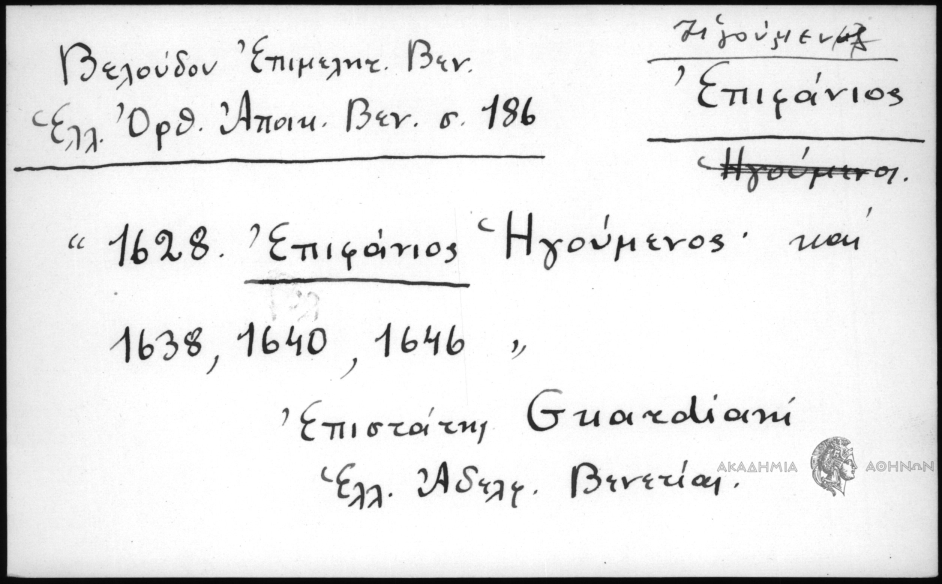 Βελούδου Ἐπιμελητ. Βεν.
Ἑλλ. Ὀρθ. Ἀποικ. Βεν. σ. 186
Ἡγούμενος
Ἐπιφάνιος
Ἡγούμενοι.
“ 1628. Ἐπιφάνιος Ἡγούμενος· καὶ
1638, 1640, 1646 „
Ἐπιστάτης Guardiani
Ἑλλ. Ἀδελφ. Βενετίας.
ΑΚΑΔΗΜΙΑ ΑΘΗΝΩΝ